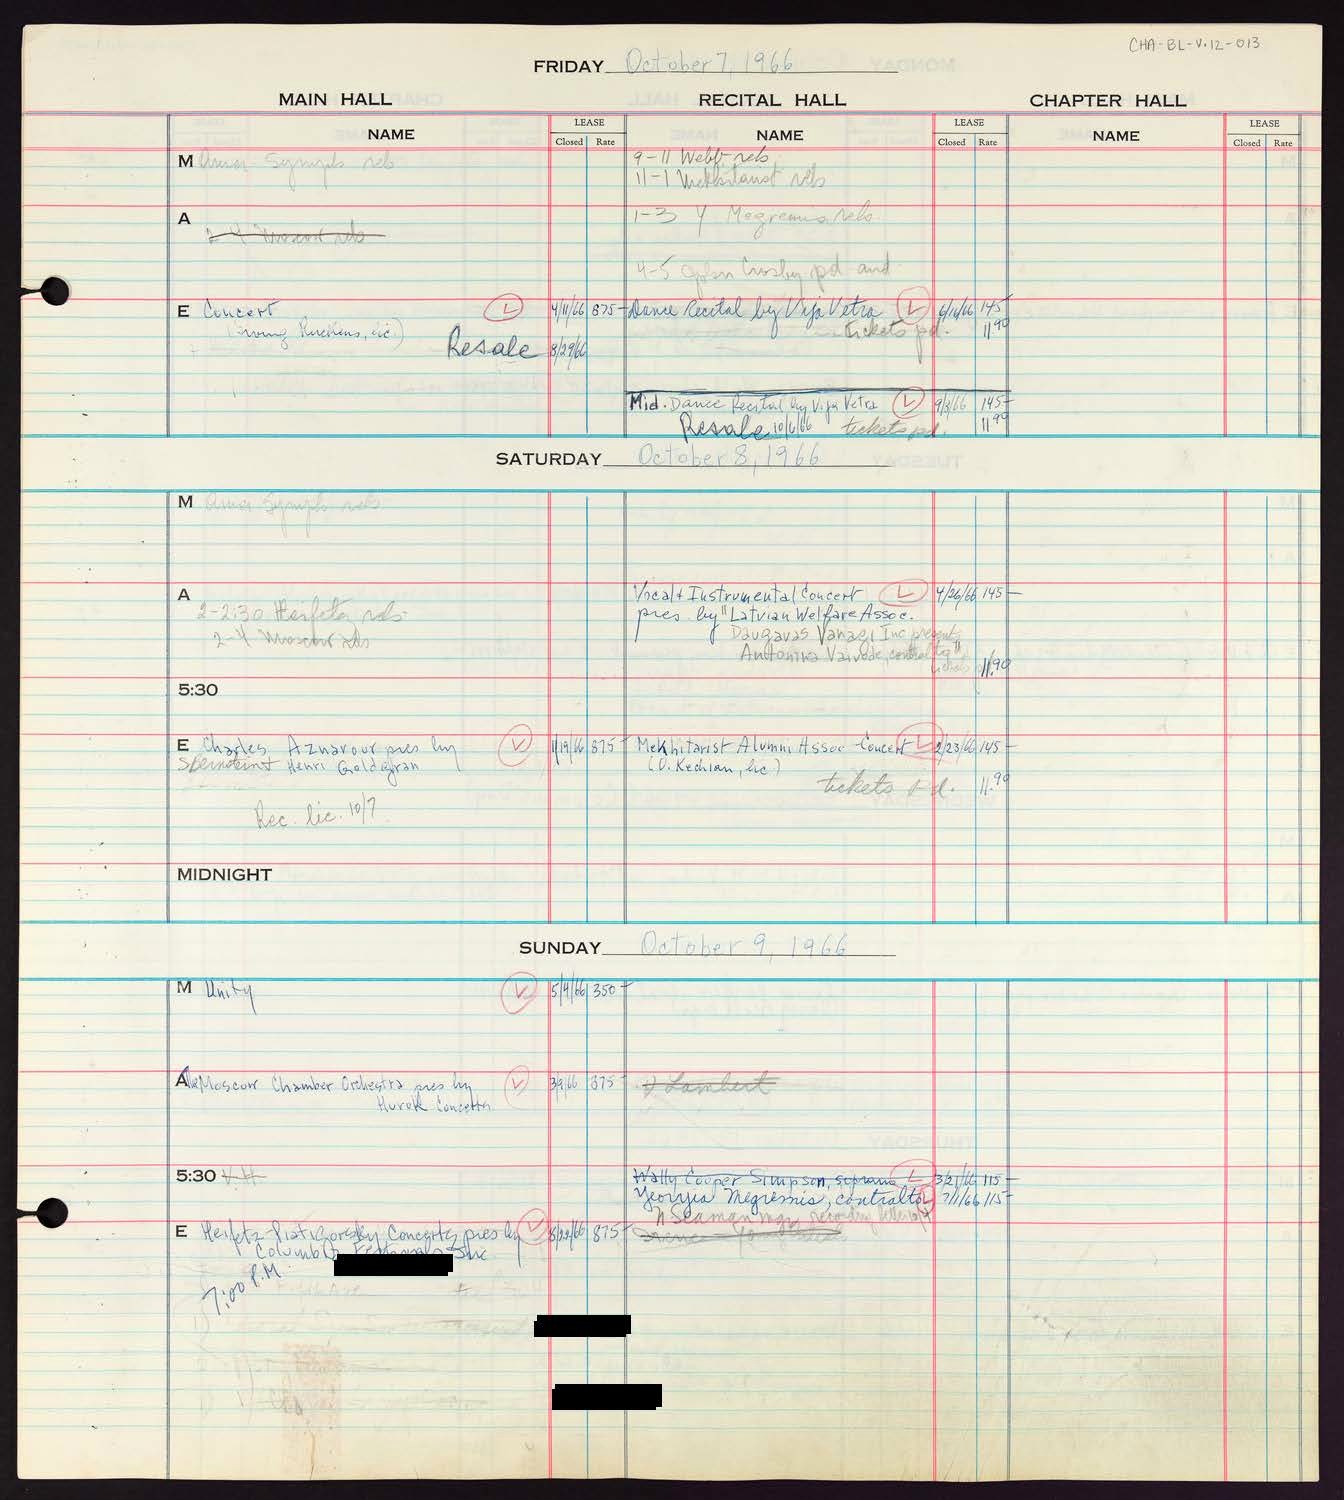 CHA-BL-V.12-013
FRIDAY October 7, 1966
MAIN HALL RECITAL HALL CHAPTER HALL
NAME LEASE NAME LEASE NAME LEASE
Closed Rate Closed Rate Closed Rate
M Amer Symph reh 9-11 Webb reh
11-1 Mekhitarist reh
A 1-3 Y Megremis reh
2-4 Moscow reh
4-5 Crosby pd and
E Concert L 4/11/66 875- Dance Recital by Vija Vetra L 6/16/66 145-
tickets pd. 11.90
Resale 8/29/66
Mid. Dance Recital by Vija Vetra L 9/3/66 145-
Resale 10/6/66 tickets pd. 11.90
SATURDAY October 8, 1966
M Amer Symph reh
A Vocal & Instrumental Concert L 4/26/66 145-
2-2:30 Heifetz reh pres. by "Latvian Welfare Assoc.
2-4 Moscow reh Daugavas Vanagi Inc presents
Antonina Vaivode, contralto"
tickets 11.90
5:30
E Charles Aznavour pres by L 1/19/66 875- Mekhitarist Alumni Assoc - Concert L 2/23/66 145-
Henri Goldgran (D. Kechian, lic)
tickets pd. 11.90
Rec. lic. 10/7
MIDNIGHT
SUNDAY October 9, 1966
M Unity L 5/4/66 350-
A The Moscow Chamber Orchestra pres by L 3/9/66 875- Lambert
Hurok Concerts
5:30 Wally Cooper Simpson, soprano L 3/21/66 115-
Yeorgia Megremis, contralto L 7/1/66 115-
N Seaman mgr recording
E Heifetz-Piatigorsky Concerts pres by L 8/22/66 875-
Columbia Festivals Inc
7:00 P.M.